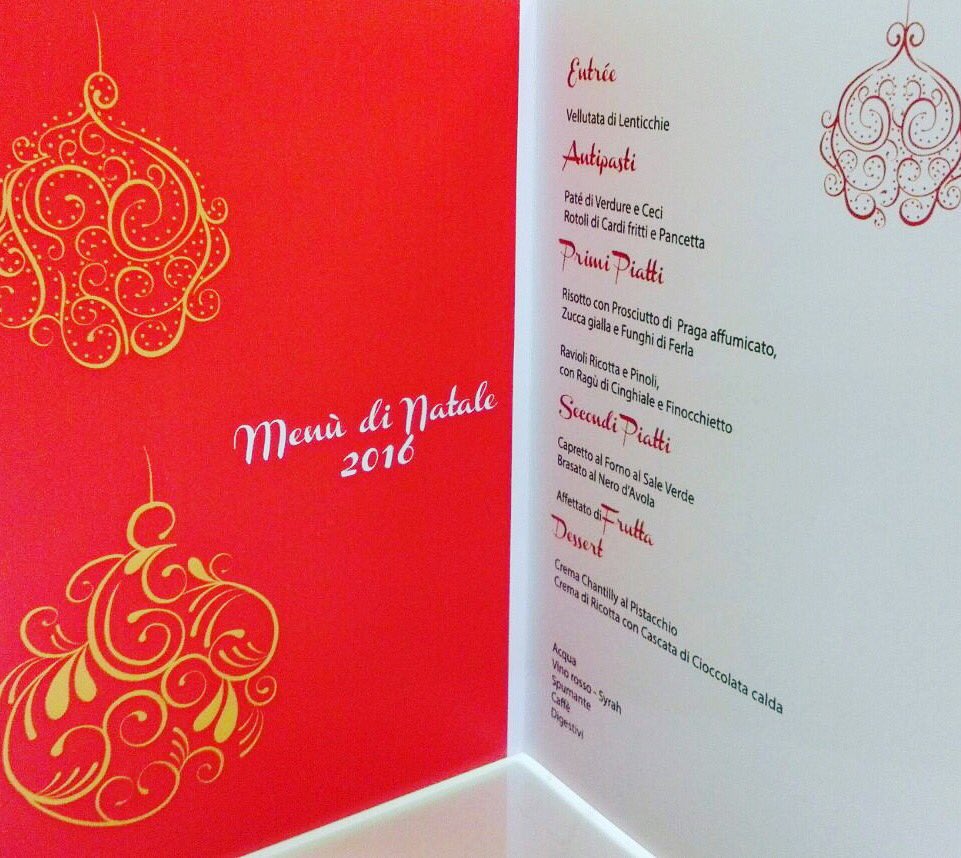 Menù di Natale
2016
Entrée
Vellutata di Lenticchie
Antipasti
Paté di Verdure e Ceci
Rotoli di Cardi fritti e Pancetta
Primi Piatti
Risotto con Prosciutto di Praga affumicato,
Zucca gialla e Funghi di Ferla
Ravioli Ricotta e Pinoli,
con Ragù di Cinghiale e Finocchietto
Secondi Piatti
Capretto al Forno al Sale Verde
Brasato al Nero d'Avola
Affettato di Frutta
Dessert
Crema Chantilly al Pistacchio
Crema di Ricotta con Cascata di Cioccolata calda
Acqua
Vino rosso - Syrah
Spumante
Caffè
Digestivi